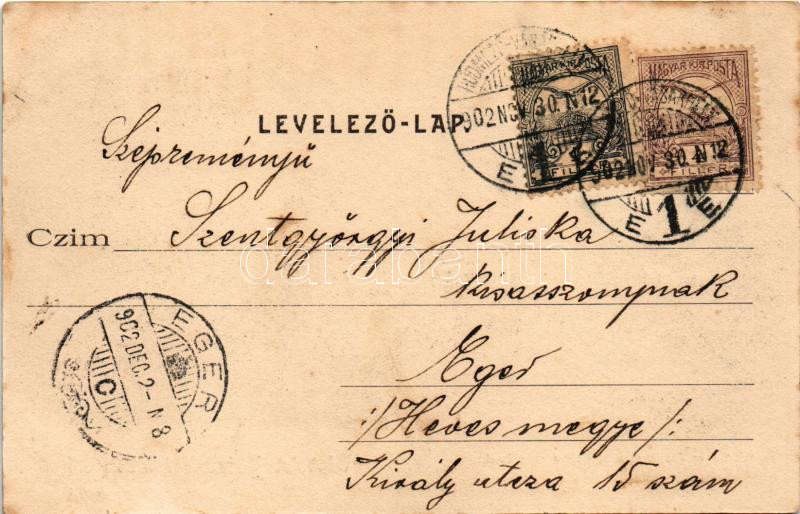 MAGYAR KIR. POSTA
MAGYAR KIR. POSTA
902 NOV 30. N 12
902 NOV 30. N 12
FILLÉR
FILLÉR
1
E
1
LEVELEZŐ-LAP
Szépreményű
Czim Szentgyörgyi Juliska
kisasszonynak
Eger
:/Heves megye/:
Király utcza 15 szám
EGER
902 DEC. 2 - N 8
C
darabanth